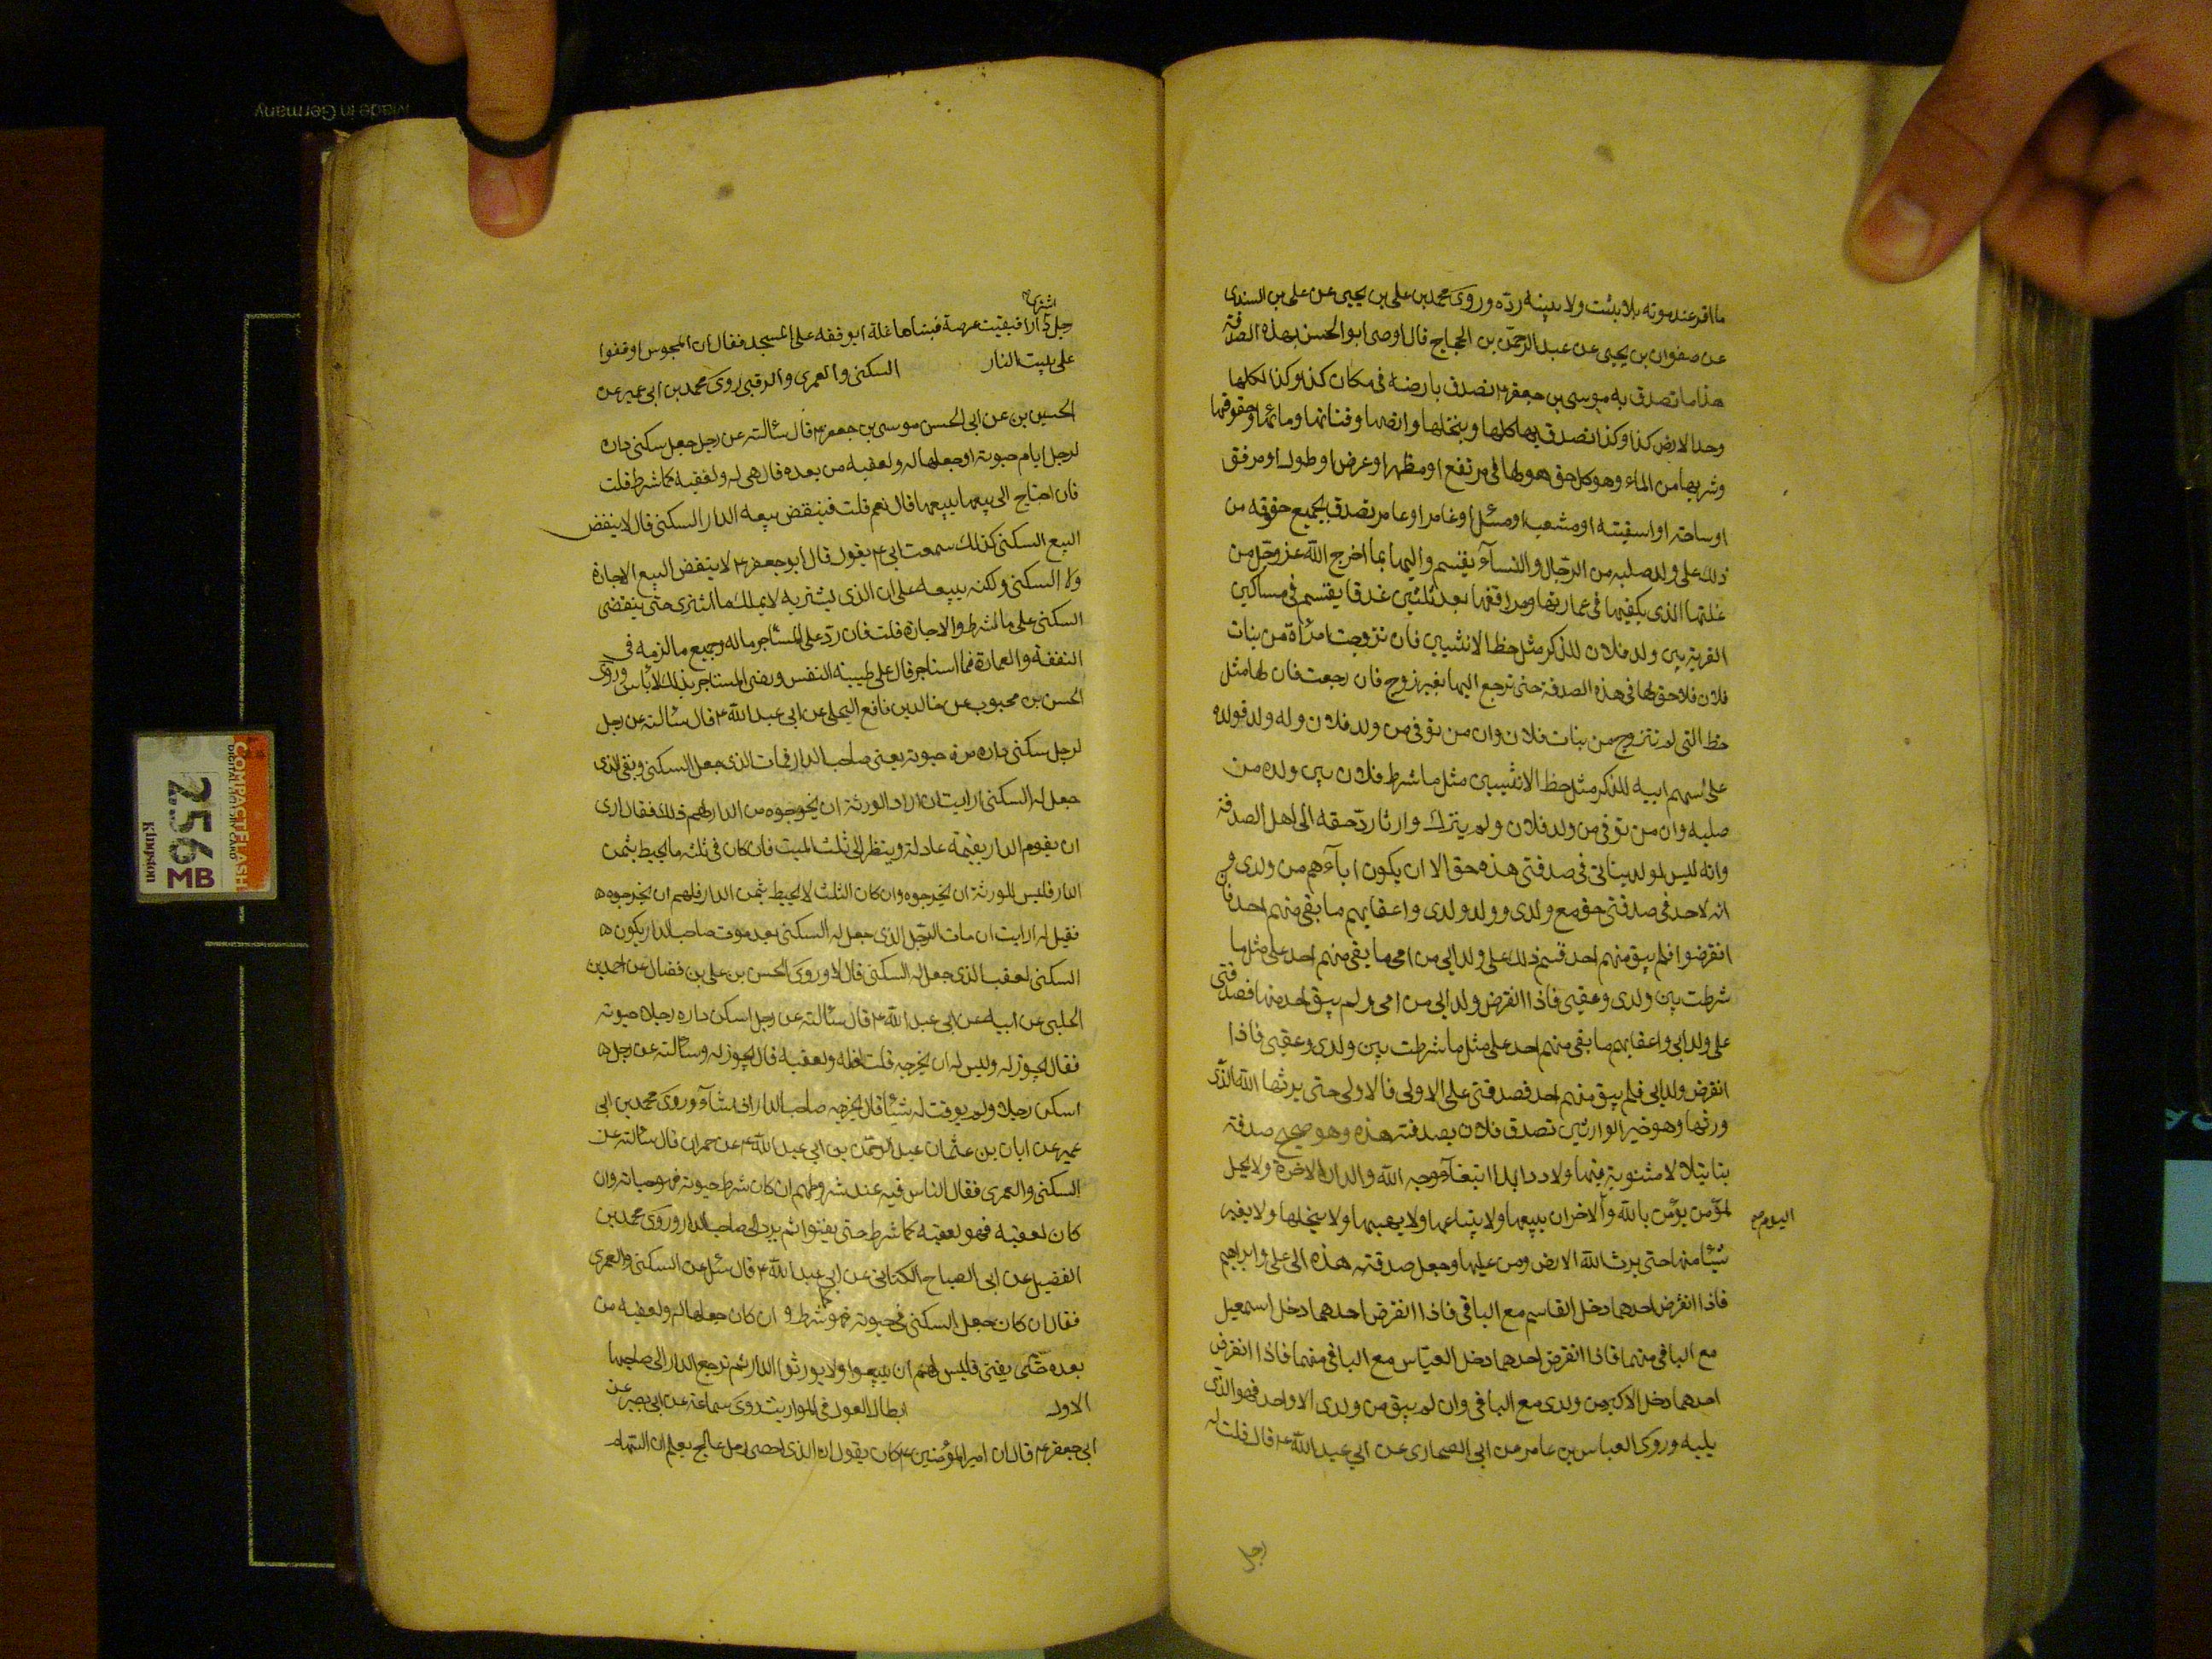 ما اقر عند موته بلا بثت ولا بينه رده وروى محمد بن علي بن يحيى عن علي بن السندي
عن صفوان بن يحيى عن عبد الرحمن بن الحجاج قال اوصى ابو الحسن بهذه الصدقة
هذا ما تصدق به موسى بن جعفر ع تصدق بارضه في مكان كذا وكذا كلها
وحد الارض كذا وكذا تصدق بها كلها وبنخلها وارضها وقناتها ومائها وحقوقها
وشربها من الماء وهو كل حق هو لها في مرتفع او مظهر او عرض او طول او مرفق
او ساحة او اسقيته او مشعب او مسيل او غامر او عامر تصدق بجميع حقوقه من
ذلك على ولد صلبه من الرجال والنسآء يقسم واليها بما اخرج الله عز وجل من
غلتها الذي يكفيها في عمارتها ومرافقها بعد ثلثين غدقا يقتسم في مساكين
القرية بين ولد فلان للذكر مثل حظ الانثيين فان تزوجت امرأة من بنات
فلان فلا حق لها في هذه الصدقة حتى ترجع اليها بغير زوج فان رجعت فان لها مثل
حظ التي لم تتزوج من بنات فلان وان من توفي من ولد فلان وله ولد فولده
على سهم ابيه للذكر مثل حظ الانثيين مثل ما شرط فلان بين ولده من
صلبه وان من توفي من ولد فلان ولم يترك وارثا رد حقه الى اهل الصدقة
وانه ليس لولد بناتي في صدقتي هذه حق الا ان يكون ابآءهم من ولدي و
انه لاحد في صدقتي حق مع ولدي وولد ولدي واعقابهم ما بقي منهم احد فان
انقرضوا فلم يبق منهم احد قسم ذلك على ولد ابي من امي ما بقي منهم احد على مثل ما
شرطت بين ولدي وعقبي فاذا انقرض ولد ابي من امي ولم يبق احد منها فصدقتي
على ولد ابي واعقابهم ما بقي منهم احد على مثل ما شرطت بين ولدي وعقبي فاذا
انقرض ولد ابي فلم يبق منهم احد فصدقتي على الاولى فالاولى حتى يرثها الله الذي
ورثها وهو خير الوارثين تصدق فلان بصدقته هذه وهو صحيح صدقة
بتا بتلا لا مثنوية فيها ولا ردا ابدا ابتغآء وجه الله والدار الاخرة ولا يحل
لمؤمن يؤمن بالله واليوم الاخر ان يبيعها ولا يبتاعها ولا يهبها ولا ينحلها ولا يغير
شيئا منها حتى يرث الله الارض ومن عليها وجعل صدقته هذه الى علي وابراهيم
فاذا انقرض احدهما دخل القاسم مع الباقي فاذا انقرض احدهما دخل اسمعيل
مع الباقي منهما فاذا انقرض احدهما دخل العباس مع الباقي منهما فاذا انقرض
احدهما دخل الاكبر من ولدي مع الباقي وان لم يبق من ولدي الا واحد فهو الذي
يليه وروى العباس بن عامر عن ابي الصحاري عن ابي عبد الله ع قال قلت له
اليوم صح
رجل
اشترى
رجل دارا فبقيت عرصة فبناها غلة ايوقفه على المسجد فقال ان المجوس اوقفوا
على بيت النار السكنى والعمرى والرقبى روى محمد بن ابي عمير عن
الحسين بن عن ابي الحسن موسى بن جعفر ع قال سألته عن رجل جعل سكنى داره
لرجل ايام حيوته او جعلها له ولعقبه من بعده قال هي له ولعقبه كما شرط قلت
فان احتاج الى بيعها يبيعها قال نعم قلت فينقض بيعه الدار السكنى قال لا ينقض
البيع السكنى كذلك سمعت ابي ع يقول قال ابو جعفر ع لا ينقض البيع الاجارة
ولا السكنى ولكنه يبيعه على ان الذي يشتريه لا يملك ما اشترى حتى ينقضى
السكنى على ما شرط والاجارة قلت فان رد على المستأجر ماله وجميع ما لزمه في
النفقة والعمارة فيما استاجر قال على طيبة النفس ورضى المستاجر بذلك لا بأس وروى
الحسن بن محبوب عن خالد بن نافع البجلي عن ابي عبد الله ع قال سألته عن رجل
لرجل سكنى داره مدة حيوته يعني صاحب الدار فمات الذي جعل السكنى وبقي الذي
جعل له السكنى ارايت ان اراد الورثة ان يخرجوه من الدار لهم ذلك فقال ارى
ان يقوم الدار بقيمة عادلة وينظر الى ثلث الميت فان كان في ثلثه ما يحيط بثمن
الدار فليس للورثة ان يخرجوه وان كان الثلث لا يحيط بثمن الدار فلهم ان يخرجوه
فقيل له ارايت ان مات الرجل الذي جعل له السكنى بعد موت صاحب الدار يكون
السكنى لعقب الذي جعل له السكنى قال لا وروى الحسن بن علي بن فضال عن احمد بن
الحلبي عن ابيه عن ابي عبد الله ع قال سألته عن رجل اسكن داره رجلا حيوته
فقال يجوز له وليس له ان يخرجه قلت فله ولعقبه قال يجوز له وسألته عن رجل
اسكن رجلا ولم يوقت له شيئا قال يخرجه صاحب الدار اذا شآء وروى محمد بن ابي
عمير عن ابان بن عثمان عبد الرحمن بن ابي عبد الله ع عن حمران قال سألته عن
السكنى والعمرى فقال الناس فيه عند شروطهم ان كان شرط حيوته فهو حياته وان
كان لعقبه فهو لعقبه كما شرط حتى يفنوا ثم يرد الى صاحب الدار وروى محمد بن
الفضيل عن ابي الصباح الكناني عن ابي عبد الله ع قال سئل عن السكنى والعمرى
فقال ان كان جعل السكنى في حيوته فهو كما شرط و ان كان جعلها له ولعقبه من
بعده حتى يفنى فليس لهم ان يبيعوا ولا يورثوا الدار ثم ترجع الدار الى صاحبها
الاول ابطال العول في المواريث روى سماعة عن ابي بصير عن
ابي جعفر ع قال ان امير المؤمنين ع كان يقول ان الذي احصى رمل عالج يعلم ان السهام
Made in Germany
COMPACTFLASH
256
MB
Kingston